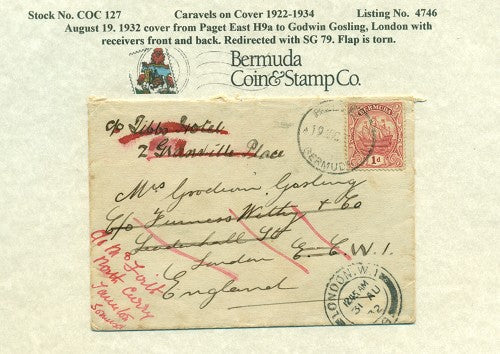 Stock No. COC 127 Caravels on Cover 1922-1934 Listing No. 4746
August 19. 1932 cover from Paget East H9a to Godwin Gosling, London with
receivers front and back. Redirected with SG 79. Flap is torn.
Bermuda
Coin & Stamp Co.
BERMUDA
1d
BERMUDA
c/o Tibbs Hotel
2 Granville Place
Mrs Goodwin Gosling
C/o Furness Withy & Co
Leadenhall St
London E.C. W.1.
England
North Curry
Taunton
Somerset
LONDON. W.1
12.45 AM
31 AU